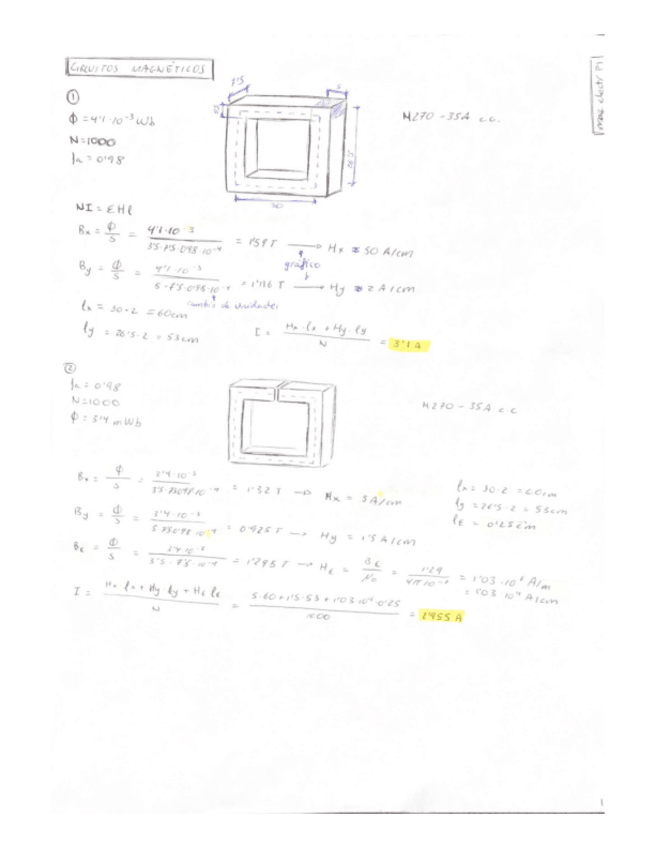 CIRCUITOS MAGNÉTICOS
①
Φ = 4'1·10⁻³ Wb
N=1000
fa = 0'98
M270-35A c.c.
30
NI = ΣHl
Bx = Φ/S = 4'1·10⁻³ / 3'5·7'5·0'98·10⁻⁴ = 1'59 T → Hx ≈ 50 A/cm
gráfico
By = Φ/S = 4'1·10⁻³ / 5·7'5·0'98·10⁻⁴ = 1'116 T → Hy ≈ 2 A/cm
cambio de unidades
lx = 30·2 = 60cm
ly = 26'5·2 = 53cm
I = Hx·lx + Hy·ly / N = 3'1 A
②
fa = 0'98
N=1000
Φ = 3'4 mWb
M270-35A c.c
Bx = Φ/S = 3'4·10⁻³ / 3'5·7'5·0'98·10⁻⁴ = 1'32 T → Hx = 5 A/cm
lx = 30·2 = 60cm
ly = 26'5·2 = 53cm
lE = 0'25 cm
By = Φ/S = 3'4·10⁻³ / 5·7'5·0'98·10⁻⁴ = 0'925 T → Hy = 1'5 A/cm
BE = Φ/S = 3'4·10⁻³ / 3'5·7'5·10⁻⁴ = 1'295 T → HE = BE/μ₀ = 1'29 / 4π10⁻⁷ = 1'03·10⁶ A/m
= 1'03·10⁴ A/cm
I = Hx lx + Hy ly + HE lE / N = 5·60+1'5·53+1'03·10⁴·0'25 / 1000 = 2'955 A
1